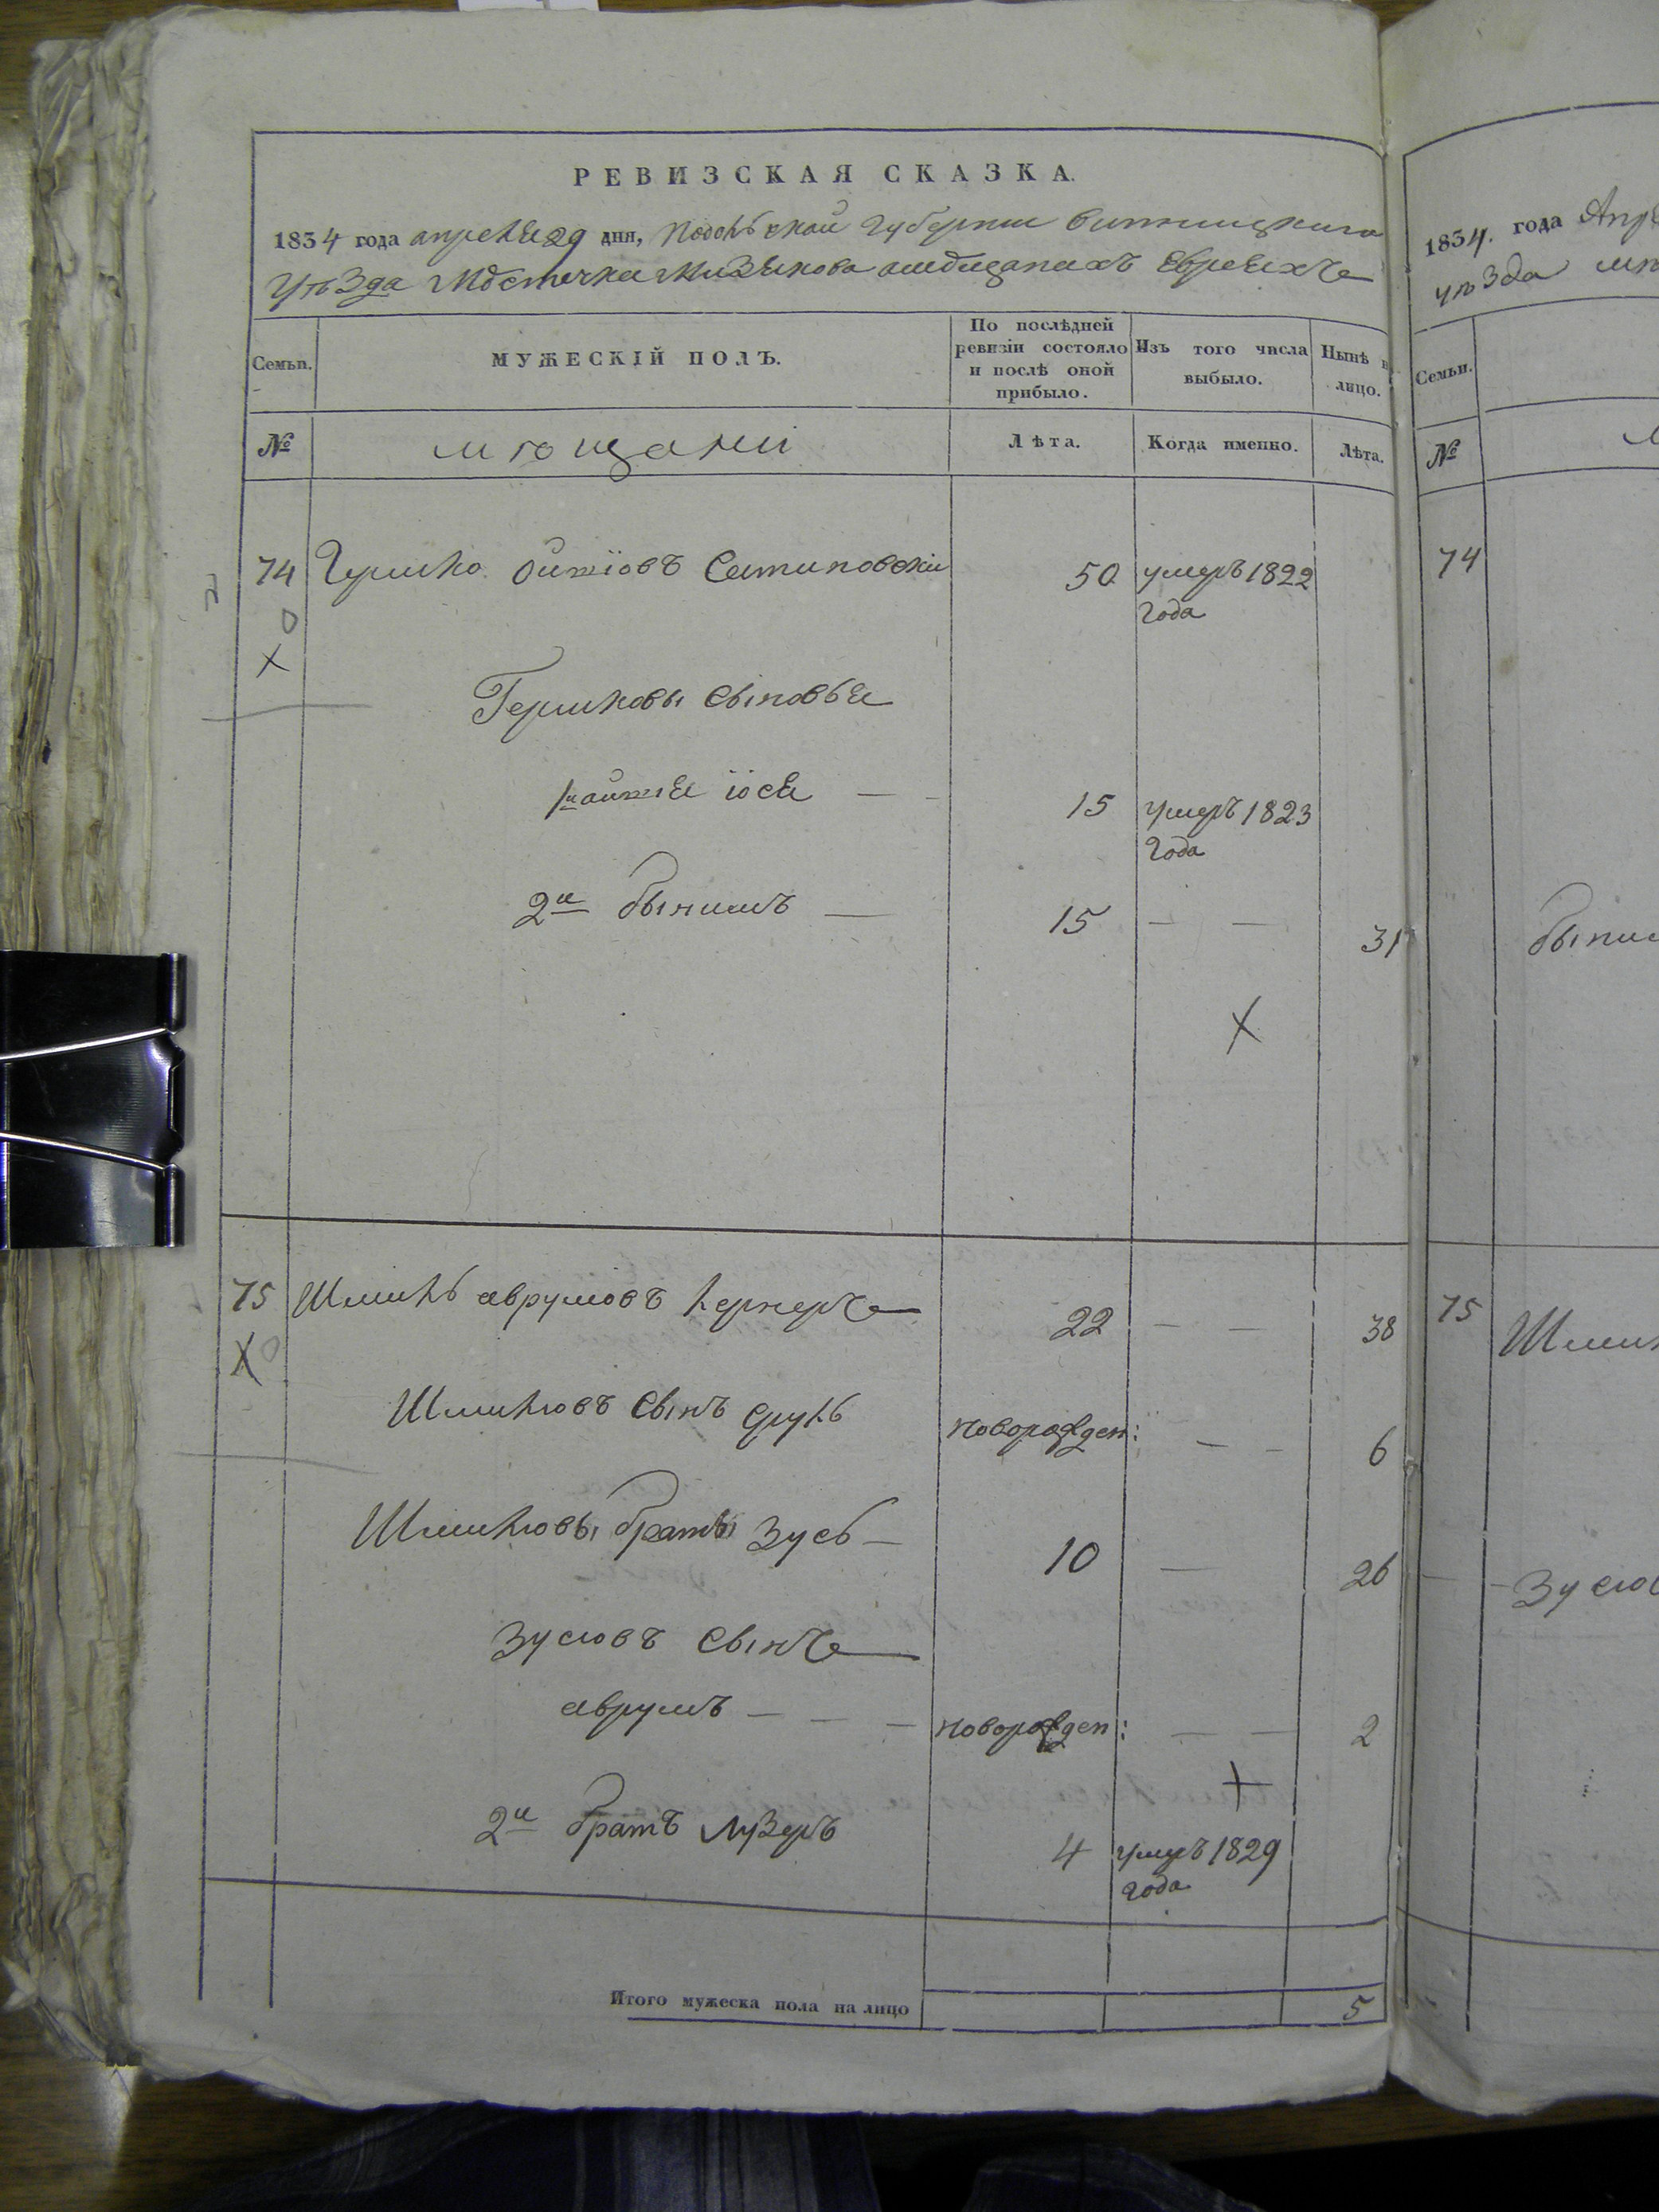 РЕВИЗСКАЯ СКАЗКА.
1834 года апреля 29 дня, Подольской Губернии Винницкого
уъзда Мѣстечка Мизякова омѣщанахъ Евреяхъ
Семьи.
МУЖЕСКІЙ ПОЛЪ.
По послѣдней ревизіи состояло и послѣ оной прибыло.
Изъ того числа выбыло.
Нынѣ на лицо.
№
мющані
Лѣта.
Когда именно.
Лѣта.
74 Гершко 50 умеръ 1822
года
Гершковы сыновья
15 умеръ 1823
года
2й 15 — — 31
75 Шмиль аврумовъ 22 — — 38
Шмилювъ сынъ Сруль новорожден: — — 6
Шмилювы браты Зусь — 10 — 26
Зусювъ сынъ
аврумъ — — — новорожден: — — 2
2й братъ Лузеръ 4 умеръ 1829
года
Итого мужеска пола на лицо 5
1834. года Апр
уъзда
Семьи.
№
74
75
Шмил
Зусюв